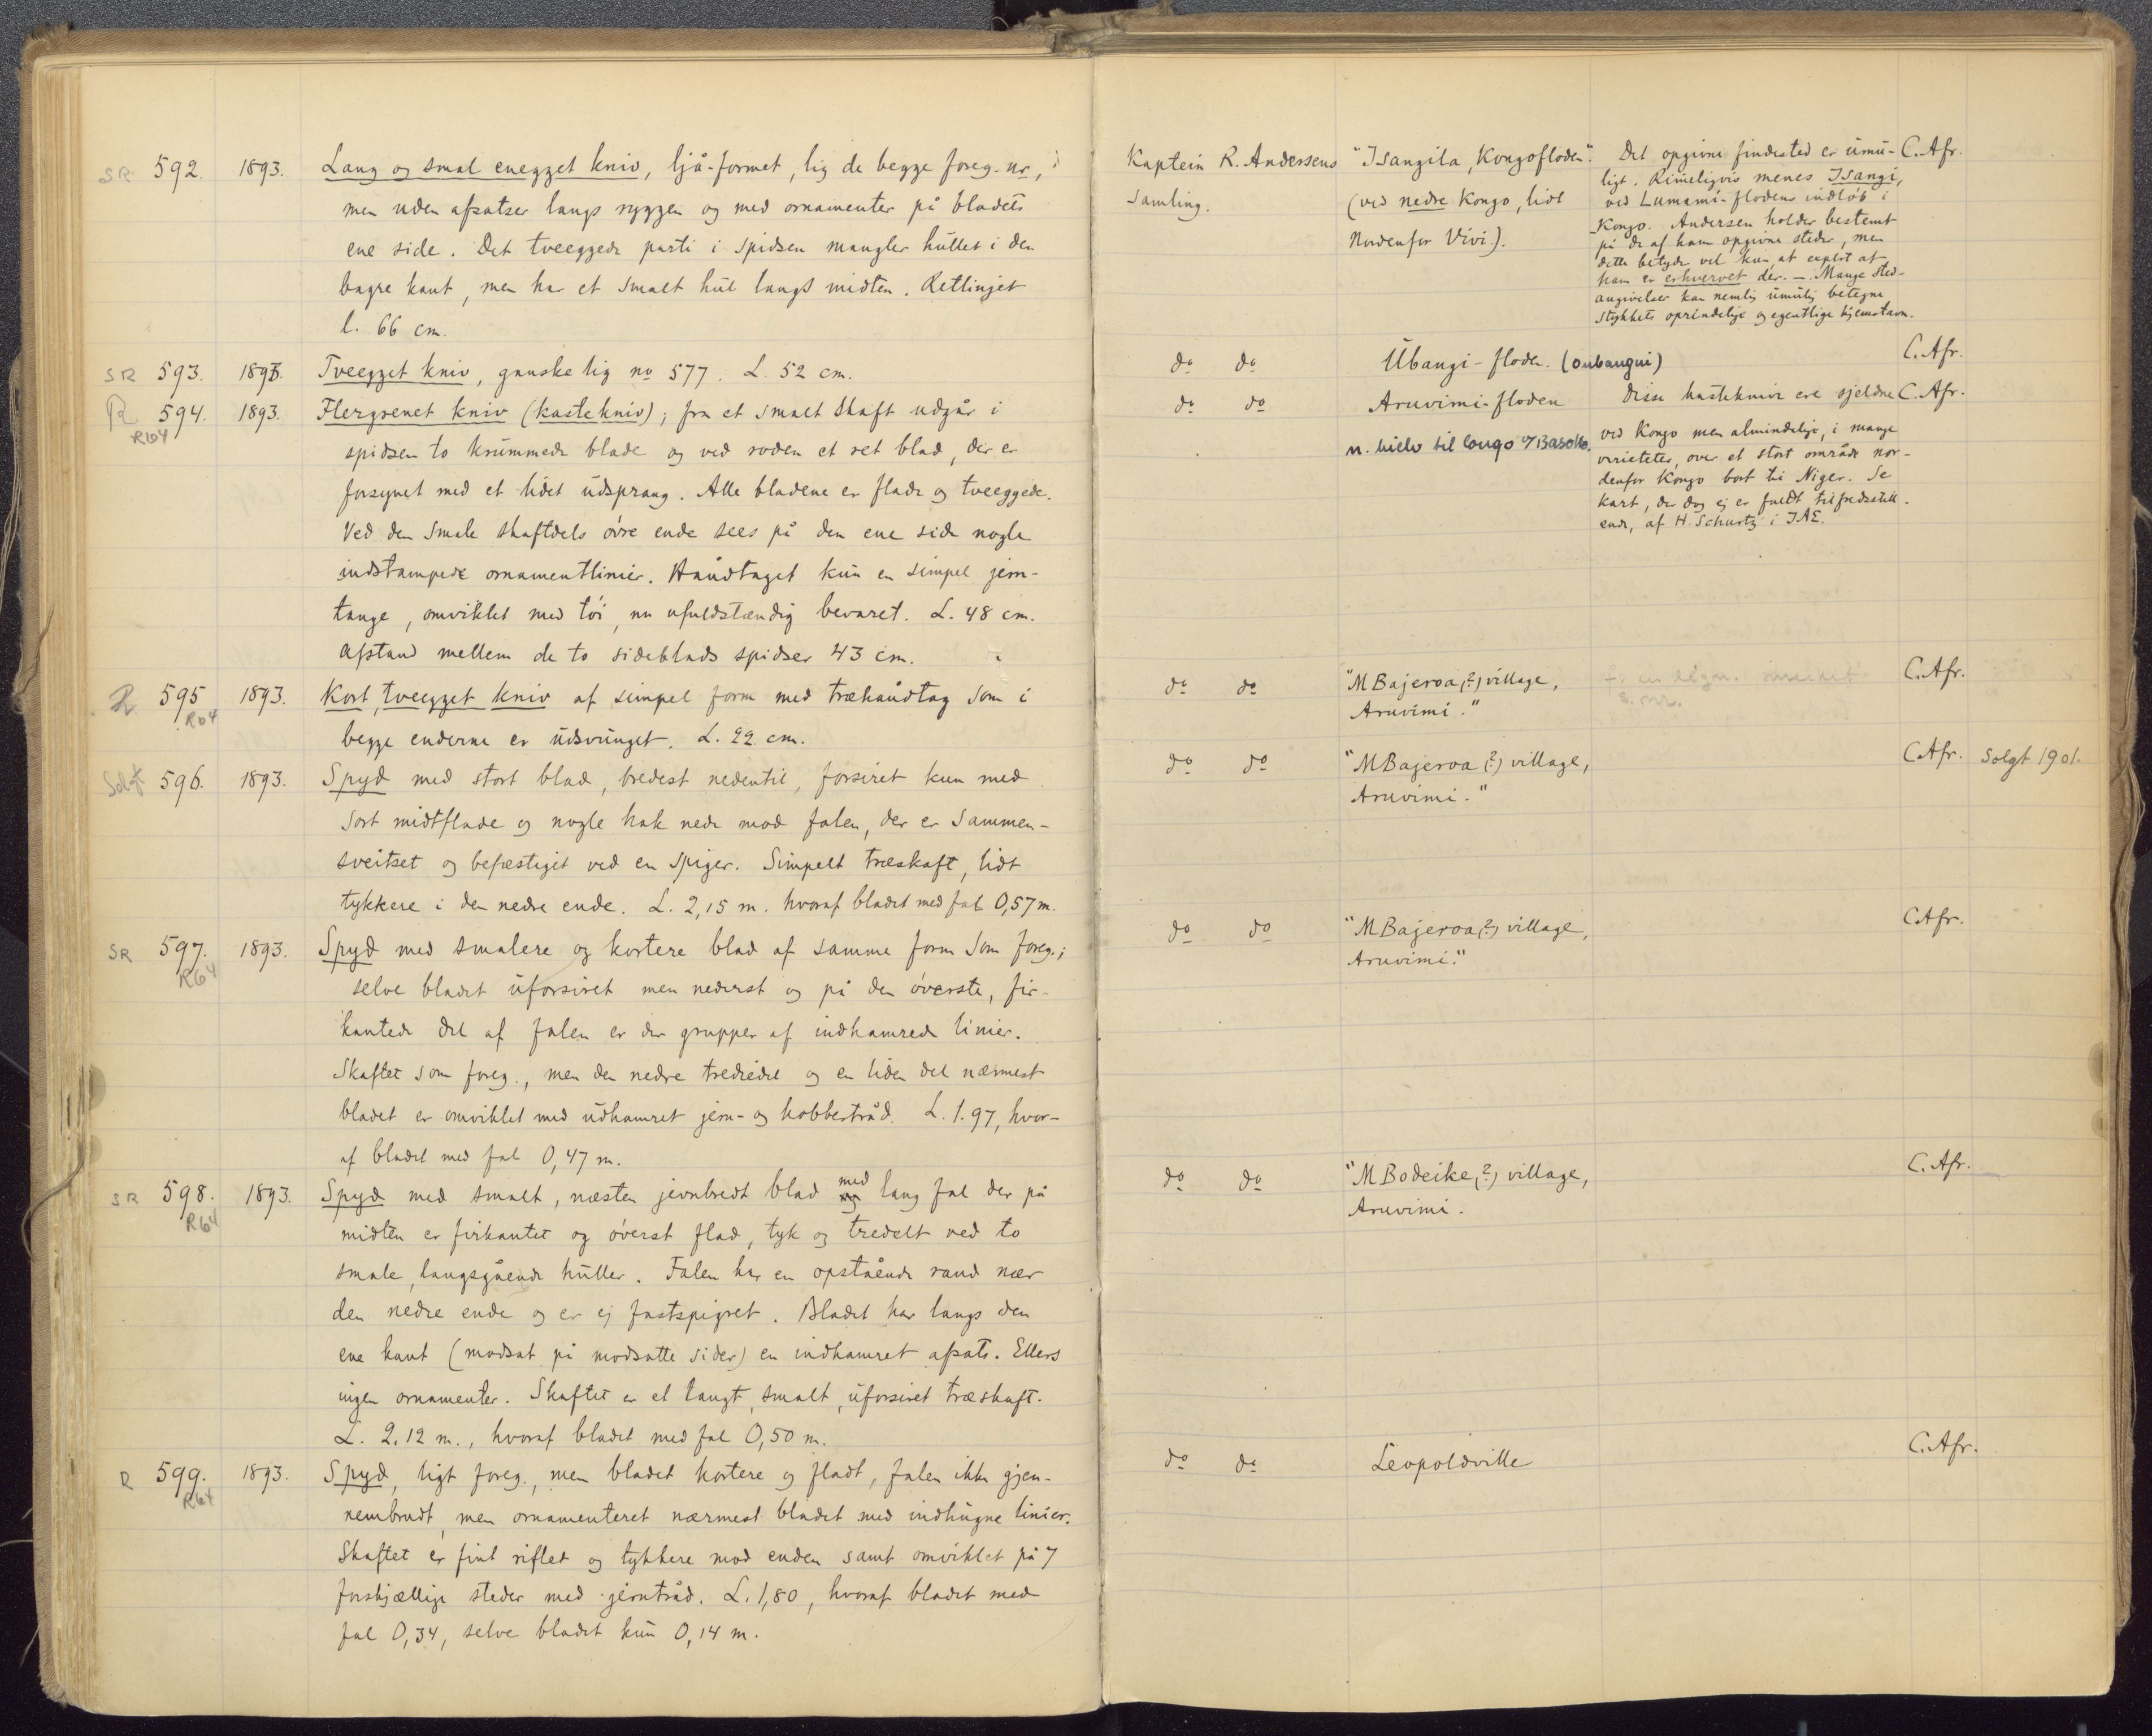 SR 592. 1893. Lang og smal enegget kniv, ljå-formet, lig de begge foreg. nr,
men uden afsatser langs ryggen og med ornamenter på bladets
ene side. Det tveeggede parti i spidsen mangler hullet i den
bagre kant, men har et smalt hul langs midten. Retlinjet
l. 66 cm.
Kaptein R. Andersens
Samling.
"Isangila, Kongofloden".
(ved nedre Kongo, lidt
Nordenfor Vivi.).
Det opgivne findested er umu-
ligt. Rimeligvis menes Isangi,
ved Lumami-flodens indløb i
Kongo. Andersen holder bestemt
på de af ham opgivne steder, men
dette betyder vel kun, at explit at
han er erhvervet dér. — Mange sted-
angivelser kan nemlig umulig betegne
stykkets oprindelige og egentlige hjemstavn.
C. Afr.
SR 593. 1893. Tveegget kniv, ganske lig no 577. L. 52 cm.
do do Ubangi-floden. (Oubangui) C. Afr.
R 594. R64 1893. Flergrenet kniv (kastekniv); fra et smalt skaft udgår i
spidsen to krummede blade og ved roden et ret blad, der er
forsynet med et lidet udsprang. Alle bladene er flade og tveeggede.
Ved den smale skaftdels øvre ende sees på den ene side nogle
indstampede ornamentlinier. Håndtaget kun en simpel jern-
tange, omviklet med tøi, nu ufuldstændig bevaret. L. 48 cm.
Afstand mellem de to sideblads spidser 43 cm.
do do Aruvimi-floden
n. bielv til Congo v/Basoko.
Disse kasteknive ere sjeldne
ved Kongo men almindelige, i mange
varieteter, over et stort område nor-
denfor Kongo bort til Niger. Se
kart, der dog ej er fuldt tilfredsstill-
ende, af H. Schurtz i IAE.
C. Afr.
R 595 R64 1893. Kort, tveegget kniv af simpel form med træhåndtag som i
begge enderne er udsvunget. L. 22 cm.
do do "MBajeroa (?) village,
Aruvimi."
C. Afr.
Solgt 596. 1893. Spyd med stort blad, bredest nedentil, forsiret kun med
sort midtflade og nogle hak nede mod falen, der er sammen-
sveitset og befæstiget ved en spiger. Simpelt træskaft, lidt
tykkere i den nedre ende. L. 2,15 m. hvoraf bladet med fal 0,57 m.
do do "MBajeroa (?) village,
Aruvimi."
C. Afr. Solgt 1901.
SR 597. R64 1893. Spyd med smalere og kortere blad af samme form som foreg.;
selve bladet uforsiret men nederst og på den øverste, fir-
kantede del af falen er der grupper af indhamrede linier.
Skaftet som foreg., men den nedre trediedel og en liden del nærmest
bladet er omviklet med udhamret jern- og kobbertråd. L. 1.97, hvor-
af bladet med fal 0,47 m.
do do "MBajeroa (?) village,
Aruvimi."
C. Afr.
SR 598. R64 1893. Spyd med smalt, næsten jevnbredt blad med lang fal der på
midten er firkantet og øverst flad, tyk og tredelt ved to
smale, langsgående huller. Falen har en opstående rand nær
den nedre ende og er ej fastspigret. Bladet har langs den
ene kant (modsat på modsatte sider) en indhamret afsats. Ellers
ingen ornamenter. Skaftet er et langt, smalt, uforsiret træskaft.
L. 2.12 m., hvoraf bladet med fal 0,50 m.
do do "MBodeike (?) village,
Aruvimi.
C. Afr.
R 599. R64 1893. Spyd, ligt foreg., men bladet kortere og fladt, falen ikke gjen-
nembrudt, men ornamenteret nærmest bladet med indhugne linier.
Skaftet er fint riflet og tykkere mod enden samt omviklet på 7
forskjællige steder med jerntråd. L. 1,80, hvoraf bladet med
fal 0,34, selve bladet kun 0,14 m.
do do Leopoldville C. Afr.